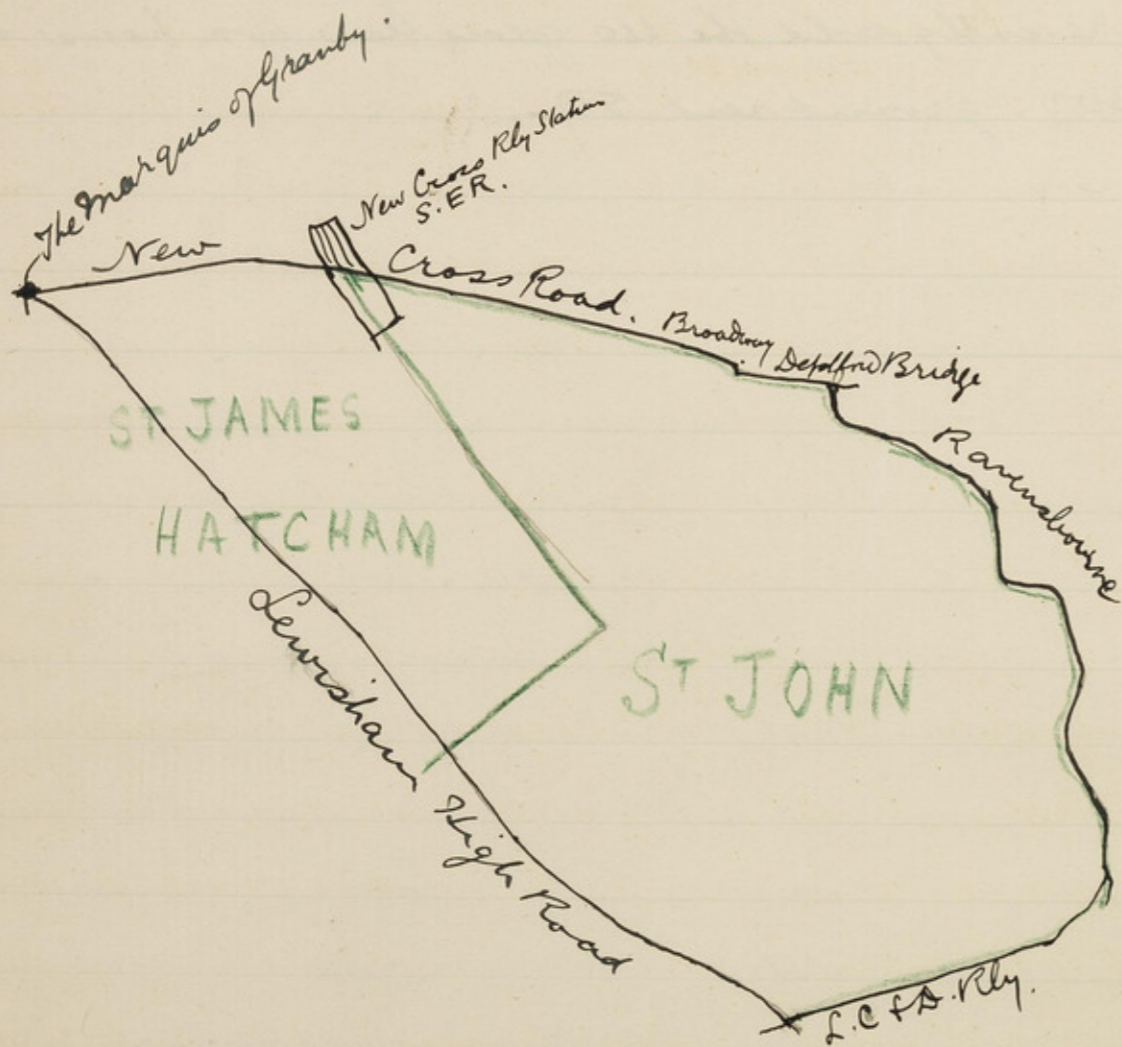 The Marquis of Granby.
New Cross Rly Station
S.E.R.
New Cross Road.
Broadway
Deptford Bridge
Ravensbourne
ST JAMES
HATCHAM
ST JOHN
Lewisham High Road
L.C & D. Rly.